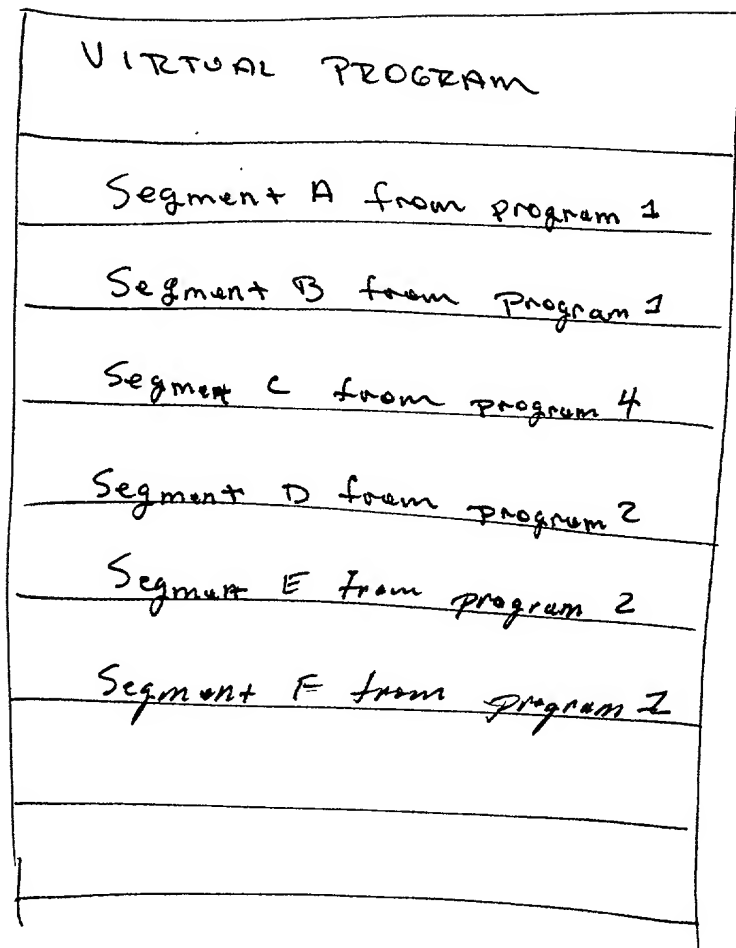 VIRTUAL PROGRAM
Segment A from program 1
Segment B from Program 1
Segment C from program 4
Segment D from program 2
Segment E from program 2
Segment F from program